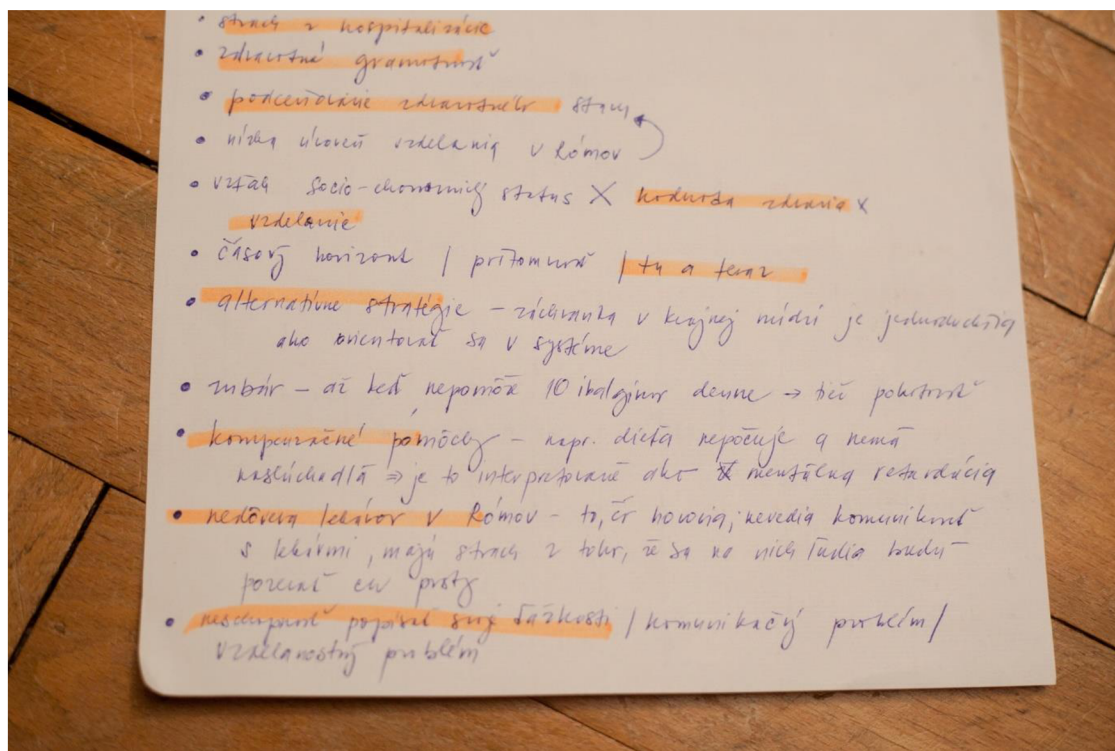 • strach z hospitalizácie
• zdravotná gramotnosť
• podceňovanie zdravotného stavu
• nízka úroveň vzdelania v Rómov
• vzťah socio-ekonomický status X hodnota zdravia x
vzdelanie
• časový horizont / prítomnosť / tu a teraz
• alternatívne stratégie – záchranka v krajnej núdzi je jednoduchšia
ako orientovať sa v systéme
• zubár – až keď nepomôže 10 ibalginov denne → tiež
• kompenzačné pomôcky – napr. dieťa nepočuje a nemá
naslúchadlá ⇒ je to interpretované ako mentálna retardácia
• nedôvera lekárov v Rómov – to, čo hovoria; nevedia komunikovať
s lekármi, majú strach z toho, že sa na nich ľudia budú
pozerať
• neschopnosť popísať svoje ťažkosti / komunikačný problém /
vzdelanostný problém